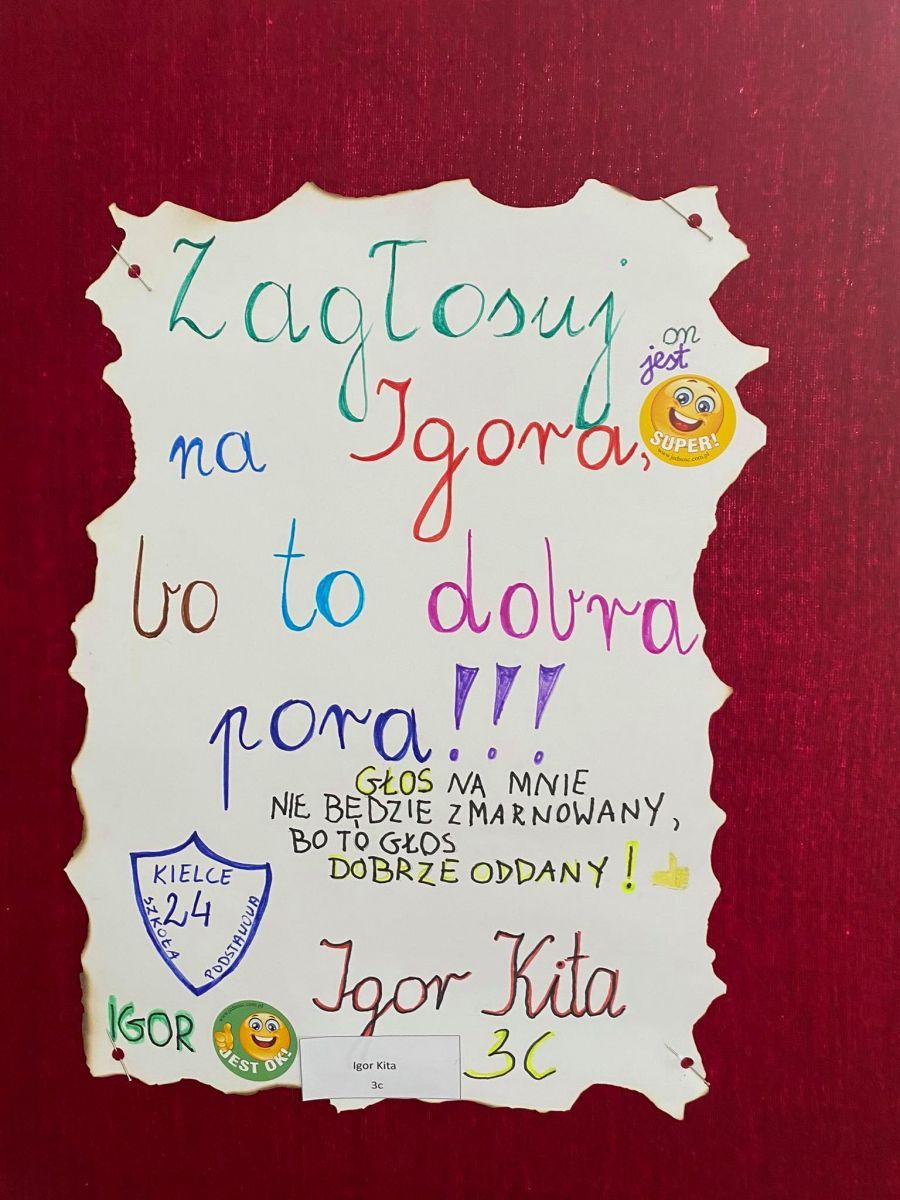 Zagłosuj
on
jest
SUPER!
www.jednosc.com.pl
na Igora,
bo to dobra
pora!!!
GŁOS NA MNIE
NIE BĘDZIE ZMARNOWANY,
BO TO GŁOS
DOBRZE ODDANY!
KIELCE
24
SZKOŁA
PODSTAWOWA
Igor Kita
3C
IGOR
www.jednosc.com.pl
JEST OK!
Igor Kita
3c